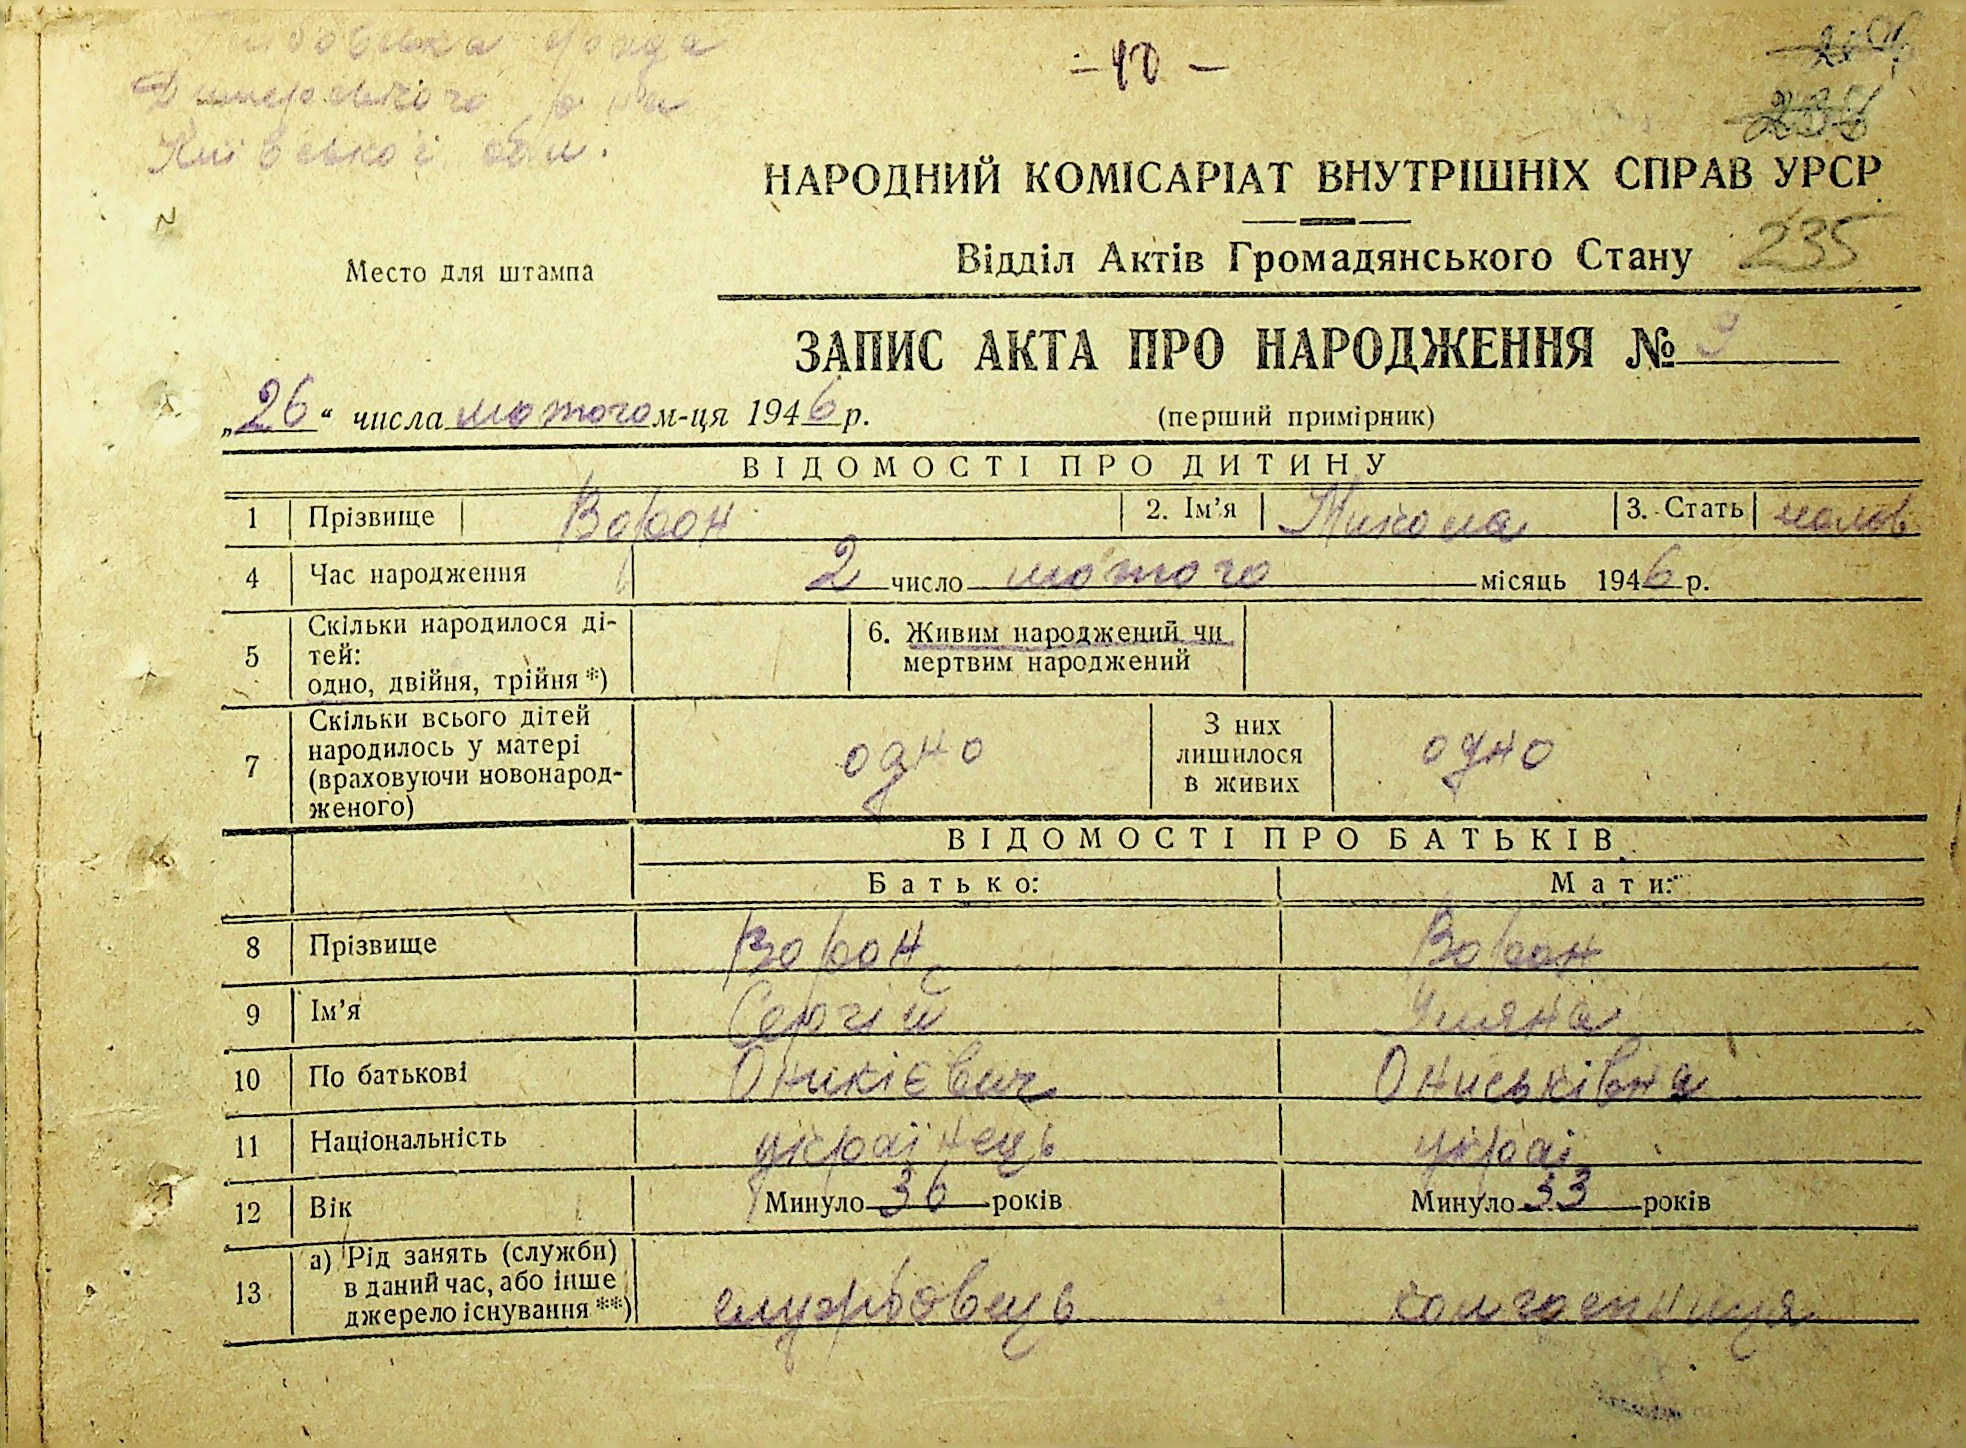 Димерського р-на
Київської обл.
- 40 -
235
НАРОДНИЙ КОМІСАРІАТ ВНУТРІШНІХ СПРАВ УРСР
Відділ Актів Громадянського Стану
Место для штампа
ЗАПИС АКТА ПРО НАРОДЖЕННЯ № 9
„26“ числа лютого м-ця 1946 р. (перший примірник)
ВІДОМОСТІ ПРО ДИТИНУ
1 Прізвище Ворон 2. Ім’я Микола 3. Стать чолов
4 Час народження 2 число лютого місяць 1946 р.
5 Скільки народилося ді-
тей:
одно, двійня, трійня *)
6. Живим народжений чи
мертвим народжений
7 Скільки всього дітей
народилось у матері
(враховуючи новонарод-
женого)
одно
З них
лишилося
в живих
одно
ВІДОМОСТІ ПРО БАТЬКІВ
Батько: Мати:
8 Прізвище Ворон Ворон
9 Ім’я Сергій Уляна
10 По батькові Оникієвич Ониськівна
11 Національність українець украї
12 Вік Минуло 36 років Минуло 33 років
13 а) Рід занять (служби)
в даний час, або інше
джерело існування **)
службовець колгоспниця